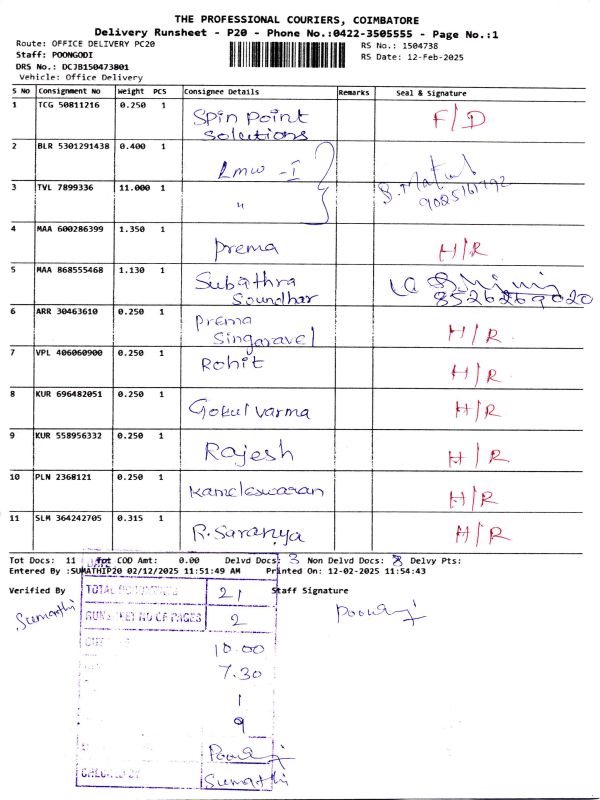 THE PROFESSIONAL COURIERS, COIMBATORE
Delivery Runsheet - P20 - Phone No.:0422-3505555 - Page No.:1
Route: OFFICE DELIVERY PC20 RS No.: 1504738
Staff: POONGODI RS Date: 12-Feb-2025
DRS No.: DCJB150473801
Vehicle: Office Delivery
S No Consignment No Weight PCS Consignee Details Remarks Seal & Signature
1 TCG 50811216 0.250 1 Spin Point Solutions F/D
2 BLR 5301291438 0.400 1 Lmw - I
3 TVL 7899336 11.000 1 "
4 MAA 600286399 1.350 1 Prema H/R
5 MAA 868555468 1.130 1 Subathra Soundhar 8526269020
6 ARR 30463610 0.250 1 Prema Singaravel H/R
7 VPL 406060900 0.250 1 Rohit H/R
8 KUR 696482051 0.250 1 Gokul varma H/R
9 KUR 558956332 0.250 1 Rajesh H/R
10 PLN 2368121 0.250 1 Kameleswaran H/R
11 SLM 364242705 0.315 1 R. Saranya H/R
Tot Docs: 11 Tot COD Amt: 0.00 Delvd Docs: 3 Non Delvd Docs: 8 Delvy Pts:
Entered By :SUMATHIP20 02/12/2025 11:51:49 AM Printed On: 12-02-2025 11:54:43
Verified By Staff Signature
Sumathi
TOTAL 21
RUNSHEET NO OF PAGES 2
10.00
7.30
1
9
CHECKED BY Sumathi